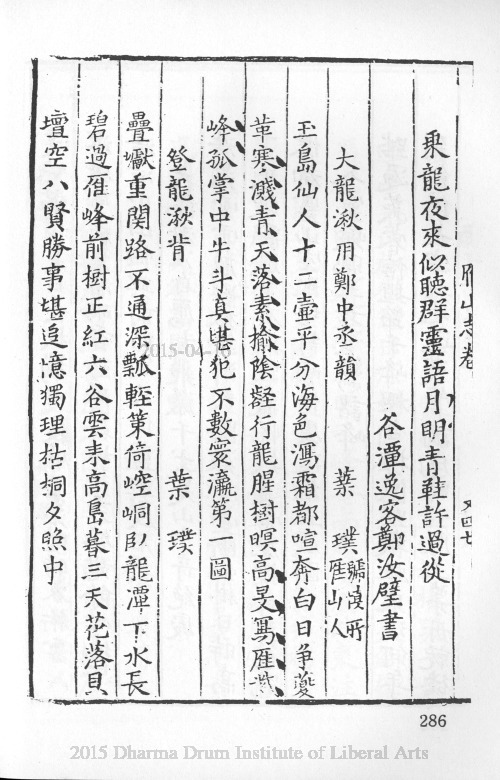 雁山志卷
又四七
乘龍夜來似聽群靈語月明青鞋許過從
谷潭逸客鄭汝璧書
大龍湫用鄭中丞韻
葉璞
雁山人
玉島仙人十二壺平分海色瀉霜都喧奔白日爭
革寒濺青天落素揄陰壑行龍腥樹暝高旻寫雁
峰孤掌中牛斗真堪犯不數寰瀛第一圖
登龍湫背
葉璞
疊巘重関路不通深瓢輊策倚崆峒臥龍潭下水長
碧過雁峰前樹正紅六谷雲來高島暮三天花落貝
壇空八賢勝事堪追憶獨理枯桐夕照中
2015-04-
286
2015 Dharma Drum Institute of Liberal Arts